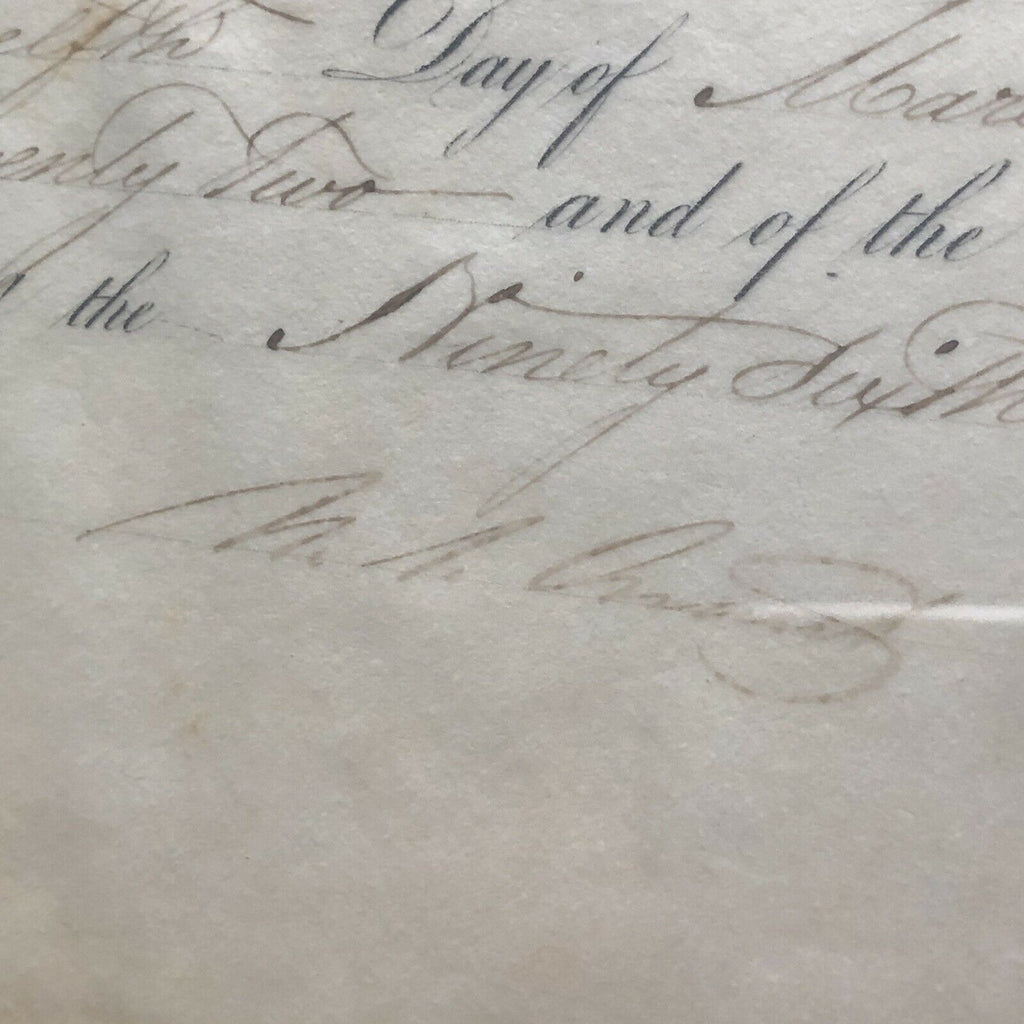 elfth Day of Mar
enty Two and of the
the Ninety Sixth